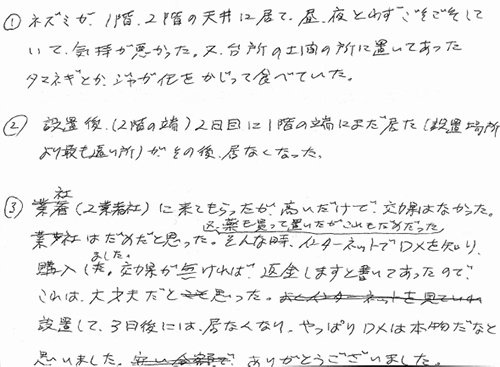 ① ネズミが、1階、2階の天井に居て、昼、夜とわずごそごそして
いて、気持が悪かった。又、台所の土間の所に置いてあった
タマネギとか、ジャガ化をかじって食べていた。
② 設置後、(2階の端) 2日目に1階の端にまだ居た(設置場所
より最も遠い所)が、その後、居なくなった。
社
③ 業者(2業者社)に来てもらったが、高いだけで、効果はなかった。
又、薬も買って置いたがこれもだめだった
業者社はだめだと思った。そんな時、インターネットでDXを知り、
ました。
購入した。効果が無ければ、返金しますと書いてあったので、
これは、大丈夫だと思った。
設置して、3日後には、居なくなり、やっぱりDXは本物だなと
思いました。安い金額で、ありがとうございました。